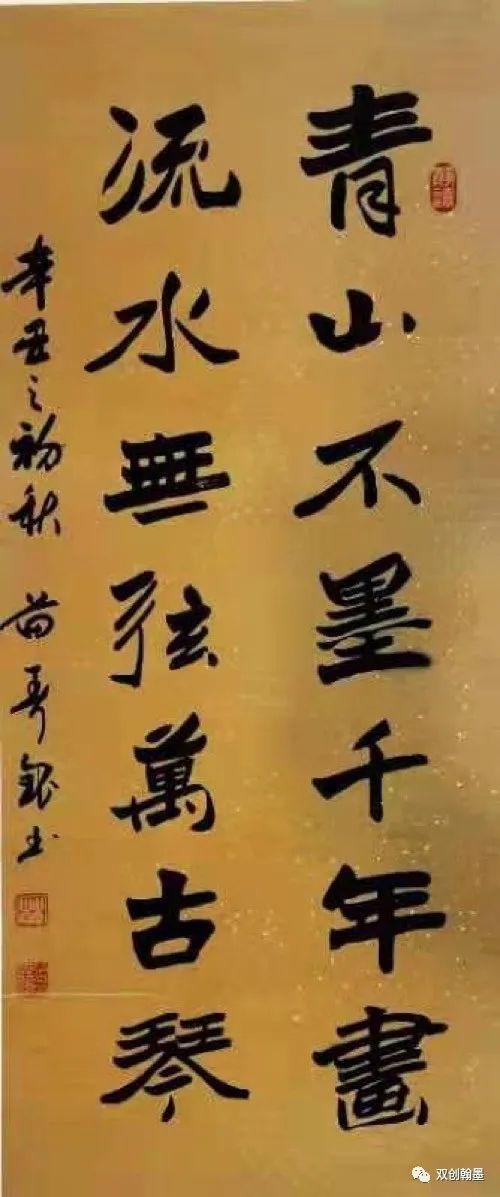 青山不墨千年畫
流水無弦萬古琴
辛丑之初秋 苗春銀书
双创翰墨